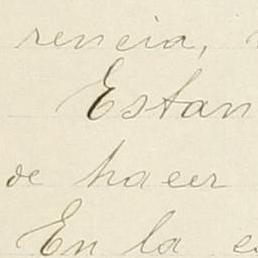 rencia,
Estan
de hacer
En la